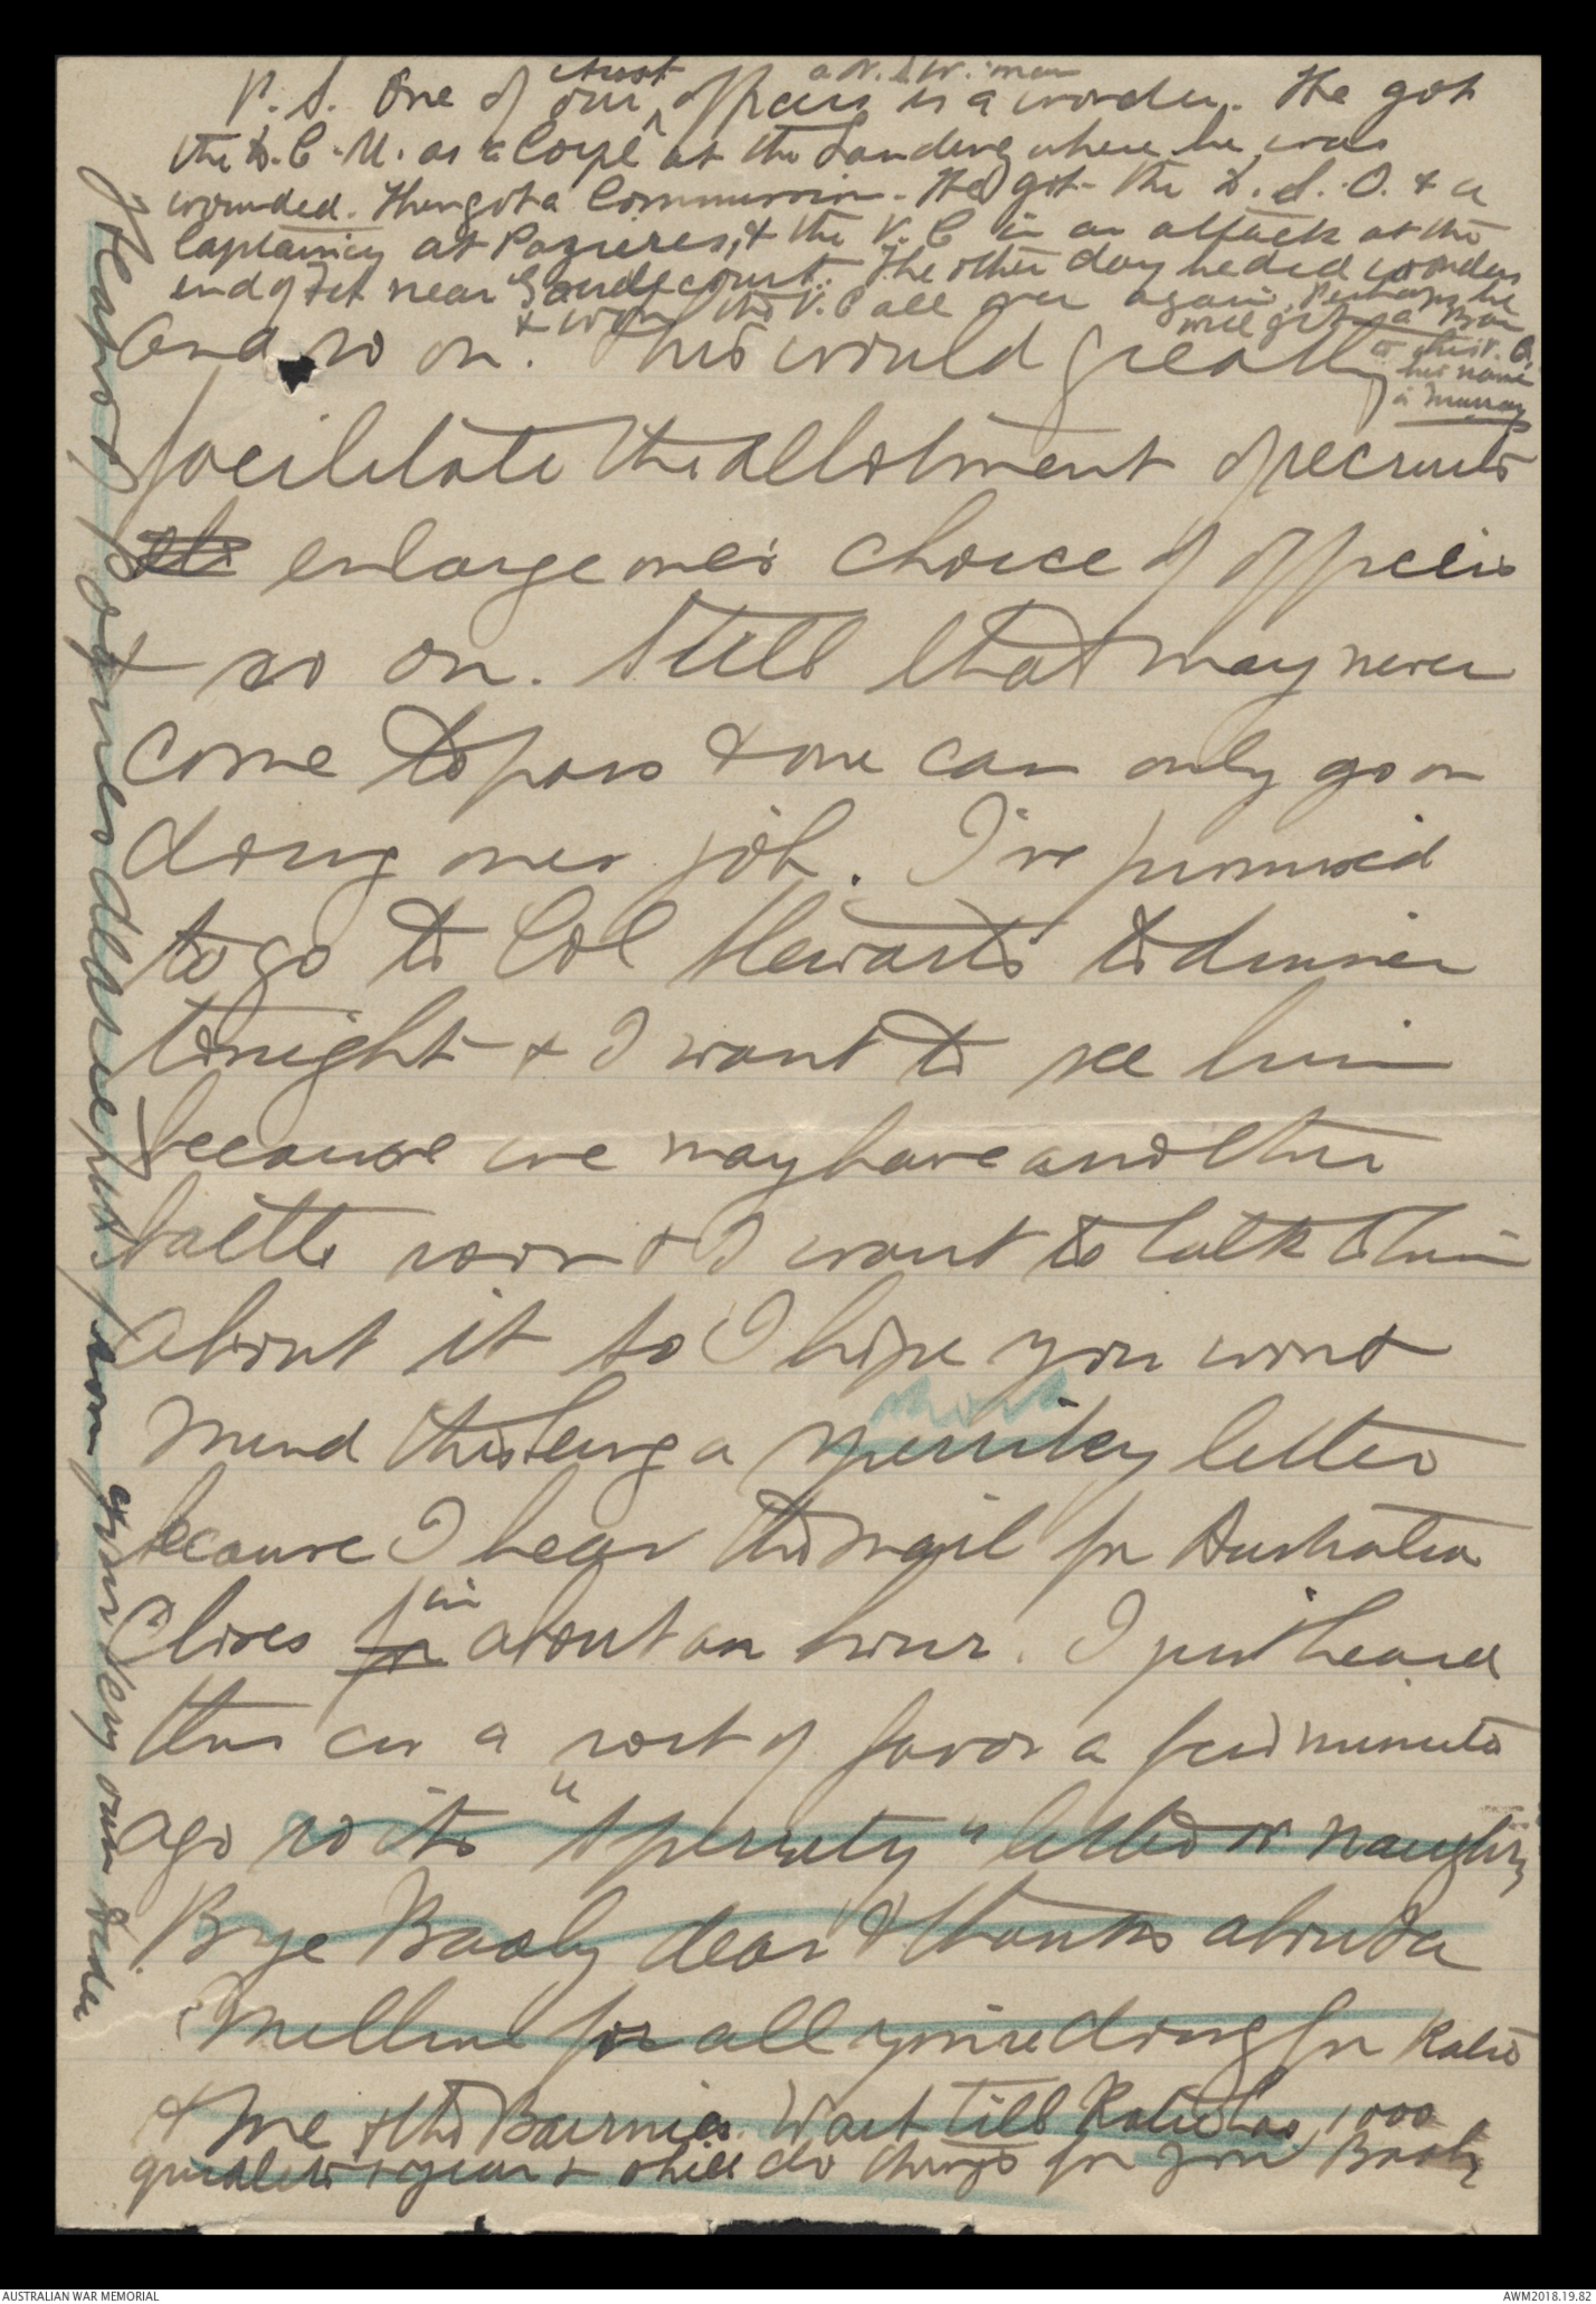 P.S. One of our Aust officers a N.S.W. man is a wonder. He got
the D.C.M. as a Corpl at the Landing where he was
wounded. Then got a Commission. He got the D.S.O. & a
Captaincy at Pozieres, & the V.C in an attack at the
end of Feb near Gueudecourt. The other day he did wonders
& won the V.C all over again. Perhaps he
will get a Bar
to his V.C.
his name
is Murray
and so on. This would greatly
facilitate the allotment of recruits
enlarge one's choice of officers
& so on. Still that may never
come to pass & one can only go on
doing ones job. I've promised
to go to Col Stewart's to dinner
tonight & I want to see him
because we may have another
battle soon & I want to talk to him
about it so I hope you wont
short
mind this being a letter
because I hear the mail for Australia
closes for in about an hour. I just heard
this as a sort of favor a few minutes
ago so its " " letter or naughty
Bye Baaby dear & thanks about a
million for all you're doing for Katie
& me & the Bairnies. Wait till Katie has 1000
a year & she'll do things for you Baaby
Heaps of ones dearie from your very own